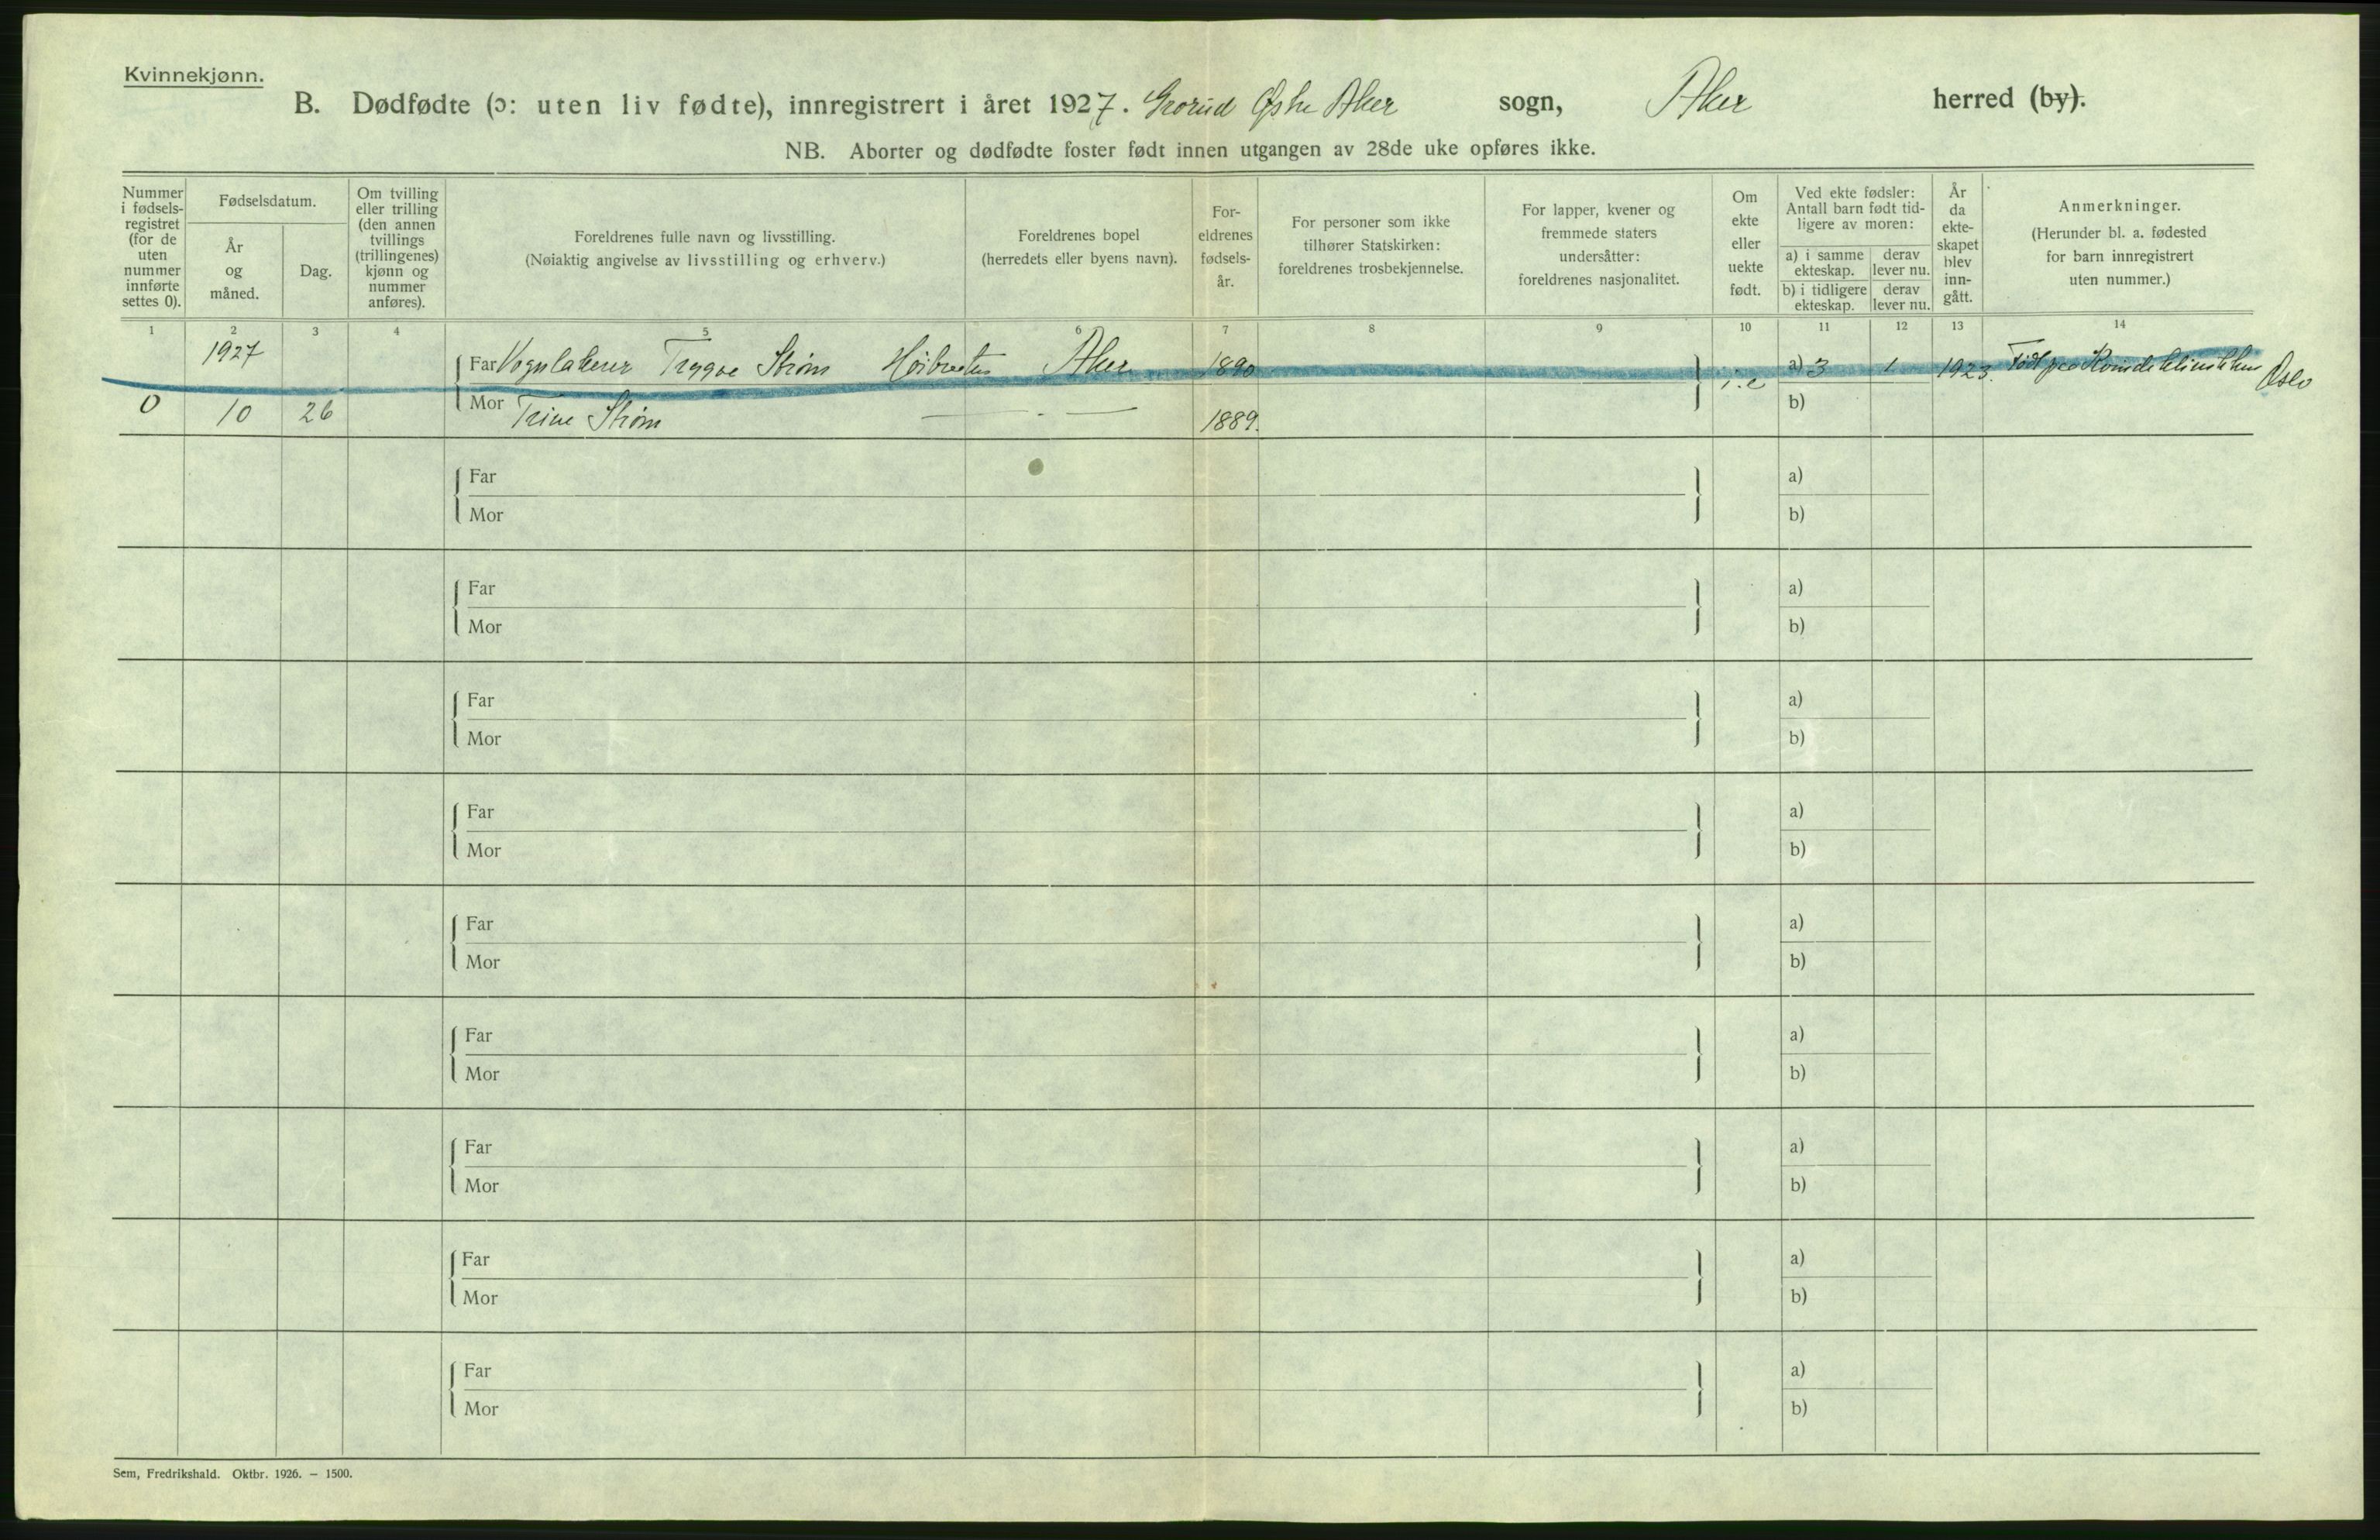 Kvinnekjønn.
B. Dødfødte (ɔ: uten liv fødte), innregistrert i året 1927. Grorud Østre Aker sogn, Aker herred (by).
NB. Aborter og dødfødte foster født innen utgangen av 28de uke opføres ikke.
Nummer i fødsels-registret (for de uten nummer innførte settes 0).
Fødselsdatum.
År og måned.
Dag.
Om tvilling eller trilling (den annen tvillings (trillingenes) kjønn og nummer anføres).
Foreldrenes fulle navn og livsstilling.
(Nøiaktig angivelse av livsstilling og erhverv.)
Foreldrenes bopel
(herredets eller byens navn).
For-eldrenes fødsels-år.
For personer som ikke tilhører Statskirken: foreldrenes trosbekjennelse.
For lapper, kvener og fremmede staters undersåtter: foreldrenes nasjonalitet.
Om ekte eller uekte født.
Ved ekte fødsler: Antall barn født tid-ligere av moren:
a) i samme ekteskap. derav lever nu.
b) i tidligere ekteskap. derav lever nu.
År da ekte-skapet blev inn-gått.
Anmerkninger.
(Herunder bl. a. fødested for barn innregistrert uten nummer.)
1 2 3 4 5 6 7 8 9 10 11 12 13 14
1927 Far Vognlakerer Trygve Strøm Høibråten Aker 1890 a) 3 1 1923. Født på Kvindeklinikken Oslo
0 10 26 Mor Trine Strøm — - — 1889. b)
Far a)
Mor b)
Far a)
Mor b)
Far a)
Mor b)
Far a)
Mor b)
Far a)
Mor b)
Far a)
Mor b)
Far a)
Mor b)
Far a)
Mor b)
Far a)
Mor b)
Sem, Fredrikshald. Oktbr. 1926. — 1500.